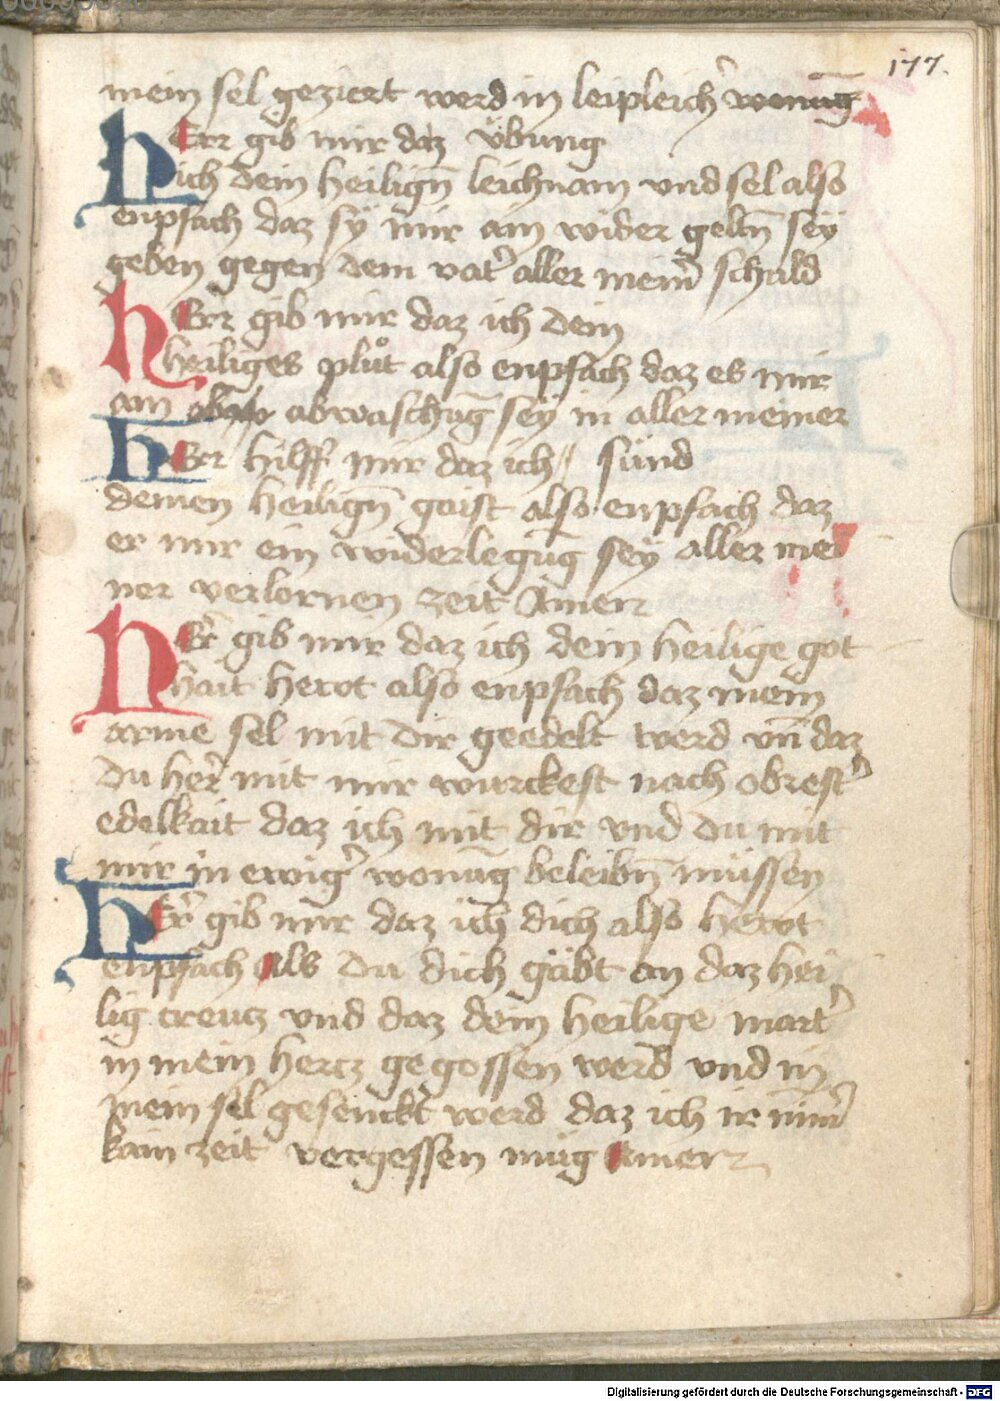 177.
mein sel geziert werd in leipleicher wonūg
HErr gib mir daz übung
ich dein heilign̄ leichnam vnd sel also
enpfach daz sÿ mir ain wider geltn̄ seÿ
geben gegen dem vat' aller mein' schuld
HErr gib mir daz ich dein
heiliges plůt also enpfach daz es mir
ain abwaschūg seÿ in aller meiner
HErr hilff mir daz ich // sünd
deinen heilign̄ gaist also enpfach daz
er mir ein widerlegūg seÿ aller mei
ner verlornen zeit Amen
HEr' gib mir daz ich dein heilige got
hait hewt also enpfach daz mein
arme sel mit dir geedelt werd vn̄ daz
du her' mit mir würckest nach obrest'
edelkait daz ich mit dir vnd du mit
mir in ewig' wonūg beleibn̄ müssen
HEr' gib mir daz ich dich also hewt
enpfach als du dich gäbt an daz hei
lig creucz vnd daz dein heilige mart'
in mein hercz gegossen werd vnd in
mein sel gesenckt werd daz ich ir nim̄'
kain zeit vergessen müg Amen
Digitalisierung gefördert durch die Deutsche Forschungsgemeinschaft - DFG